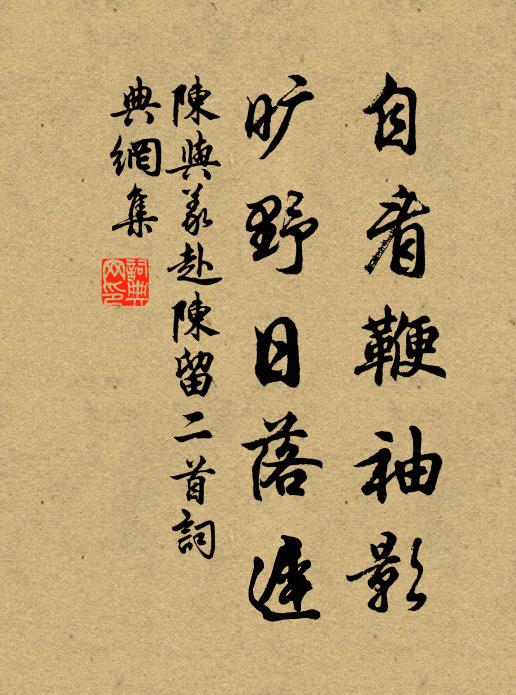 自看鞭袖影
旷野日落遲
陳與義赴陳留二首詞
典網集
詞典
网印